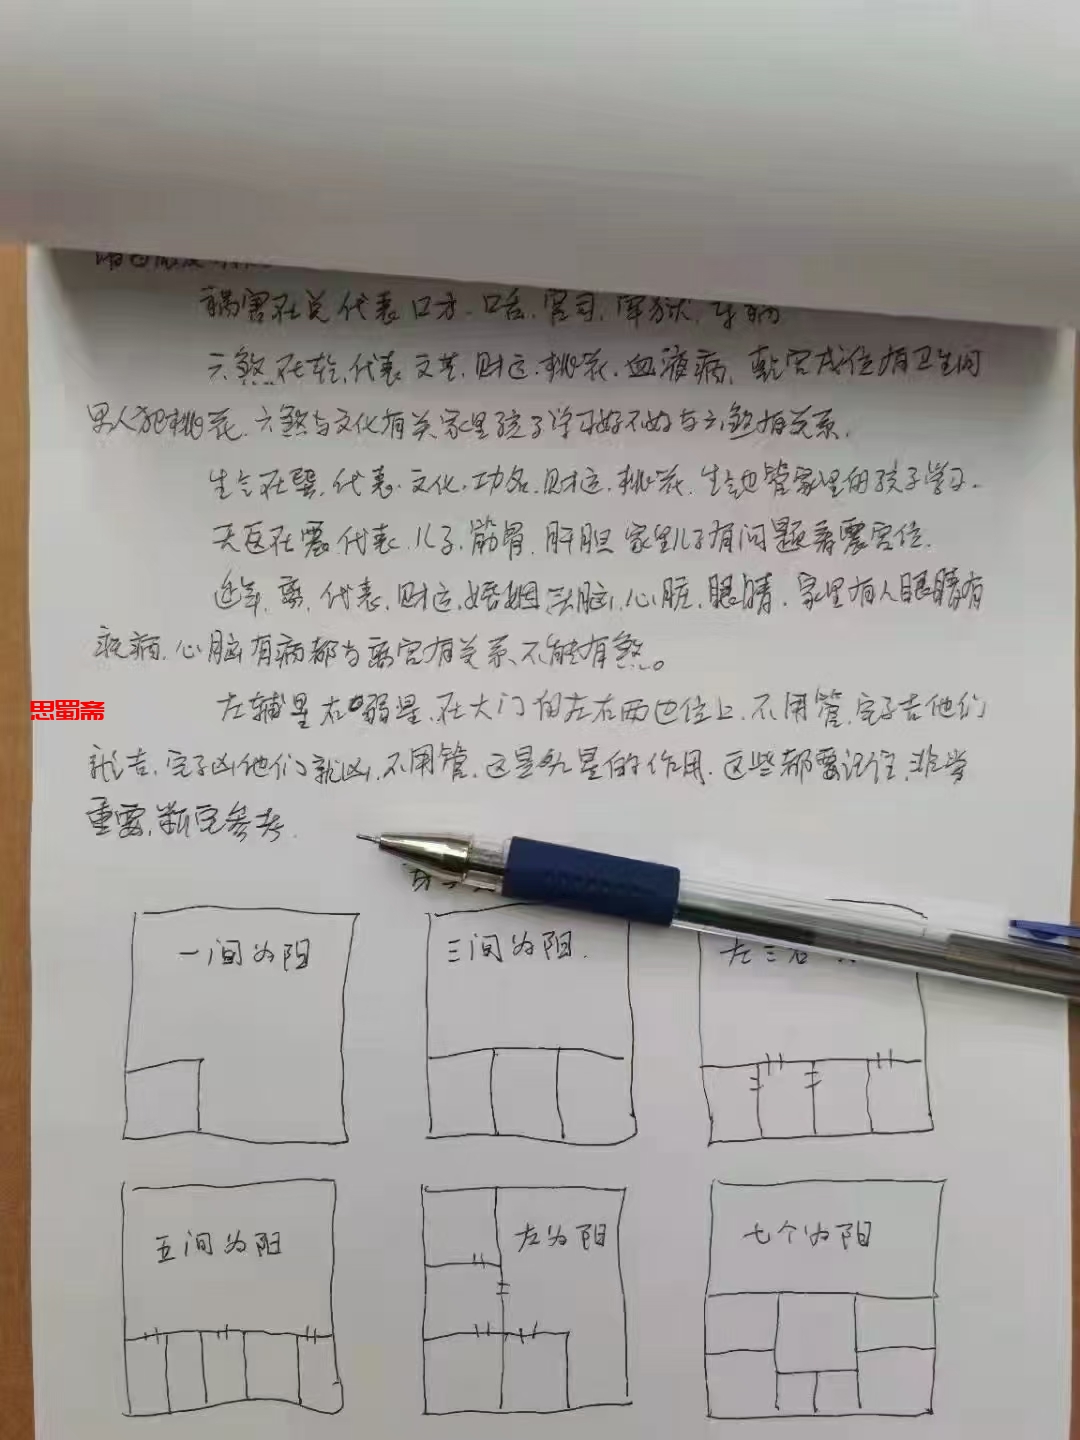 祸害在兑代表口才.口舌.官司.牢狱.牙病
六煞在乾.代表文艺.财运.桃花.血液病.乾宫戌位有卫生间
男人犯桃花.六煞与文化有关家里孩子学习好不好与六煞有关系.
生气在巽.代表.文化.功名.财运.桃花.生气也管家里的孩子学习.
天医在震.代表.儿子.筋骨.肝胆家里儿子有问题看震宫位.
延年.离.代表.财运.婚姻头脑.心脏.眼睛.家里有人眼睛有
疾病.心脑有病都与离宫有关系.不能有煞。
思蜀斋
左辅星右弼星.在大门的左右两边位上.不用管.宅子吉他们
就吉.宅子凶他们就凶.不用管.这是九星的作用.这些都要记住.非常
重要.断宅参考.
一间为阳
三间为阳.
左三右
五间为阳
左为阳
七个为阳